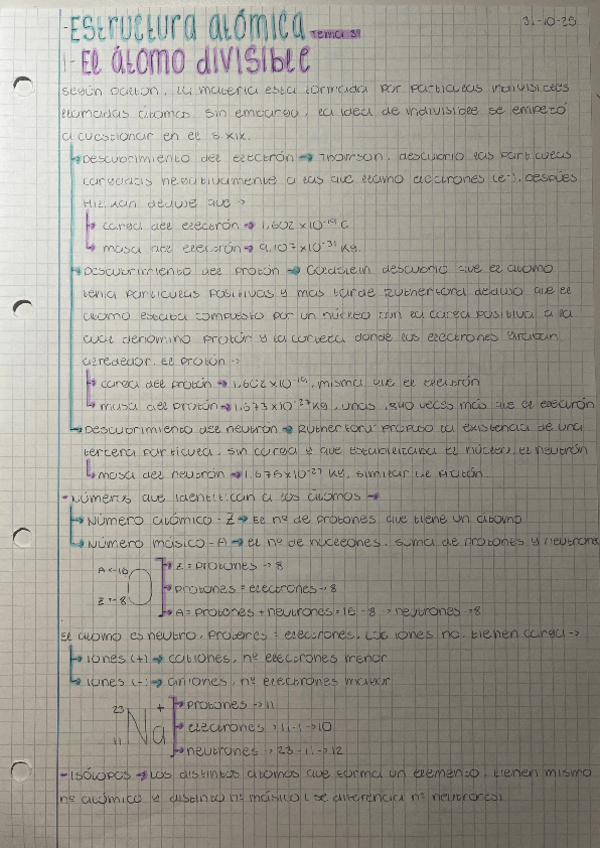 -Estructura atómica Tema 3 31-10-25
1- El átomo divisible
según Dalton, la materia está formada por partículas indivisibles
llamadas átomos. Sin embargo, la idea de indivisible se empezó
a cuestionar en el s.XIX.
Descubrimiento del electrón → Thomson, descubrió las partículas
cargadas negativamente a las que llamo electrones (e-), después
Millikan deduje que →
carga del electrón → 1,602 x 10⁻¹⁹ C
masa del electrón → 9,107 x 10⁻³¹ Kg.
Descubrimiento del protón → Goldstein descubrió que el átomo
tenía partículas positivas y mas tarde Rutherford dedujo que el
átomo estaba compuesto por un núcleo con la carga positiva a la
cual denominó protón y la corteza donde los electrones giraban
alrededor. El protón →
carga del protón → 1,602 x 10⁻¹⁹, misma que el electrón
masa del protón → 1,673 x 10⁻²⁷ Kg, unas 1840 veces más que el electrón
Descubrimiento del neutrón → Rutherford propuso la existencia de una
tercera partícula, sin carga y que estabilizaba el núcleo, el neutrón
masa del neutrón → 1,675 x 10⁻²⁷ Kg, similar al protón
- Números que identifican a los átomos →
Número atómico - Z → El nº de protones que tiene un átomo
Número másico - A → el nº de nucleones. Suma de protones y neutrones
A ← 16 O Z = protones → 8
Z ← 8 protones = electrones → 8
A = protones + neutrones = 16 - 8 → neutrones → 8
El átomo es neutro, protones = electrones. Los iones no, tienen carga →
iones (+) → cationes, nº electrones menor
iones (-) → aniones, nº electrones mayor
23 + protones → 11
Na electrones → 11-1 → 10
11 neutrones → 23-11 → 12
- Isótopos → Los distintos átomos que forma un elemento, tienen mismo
nº atómico y distinto nº másico (se diferencia nº neutrones)